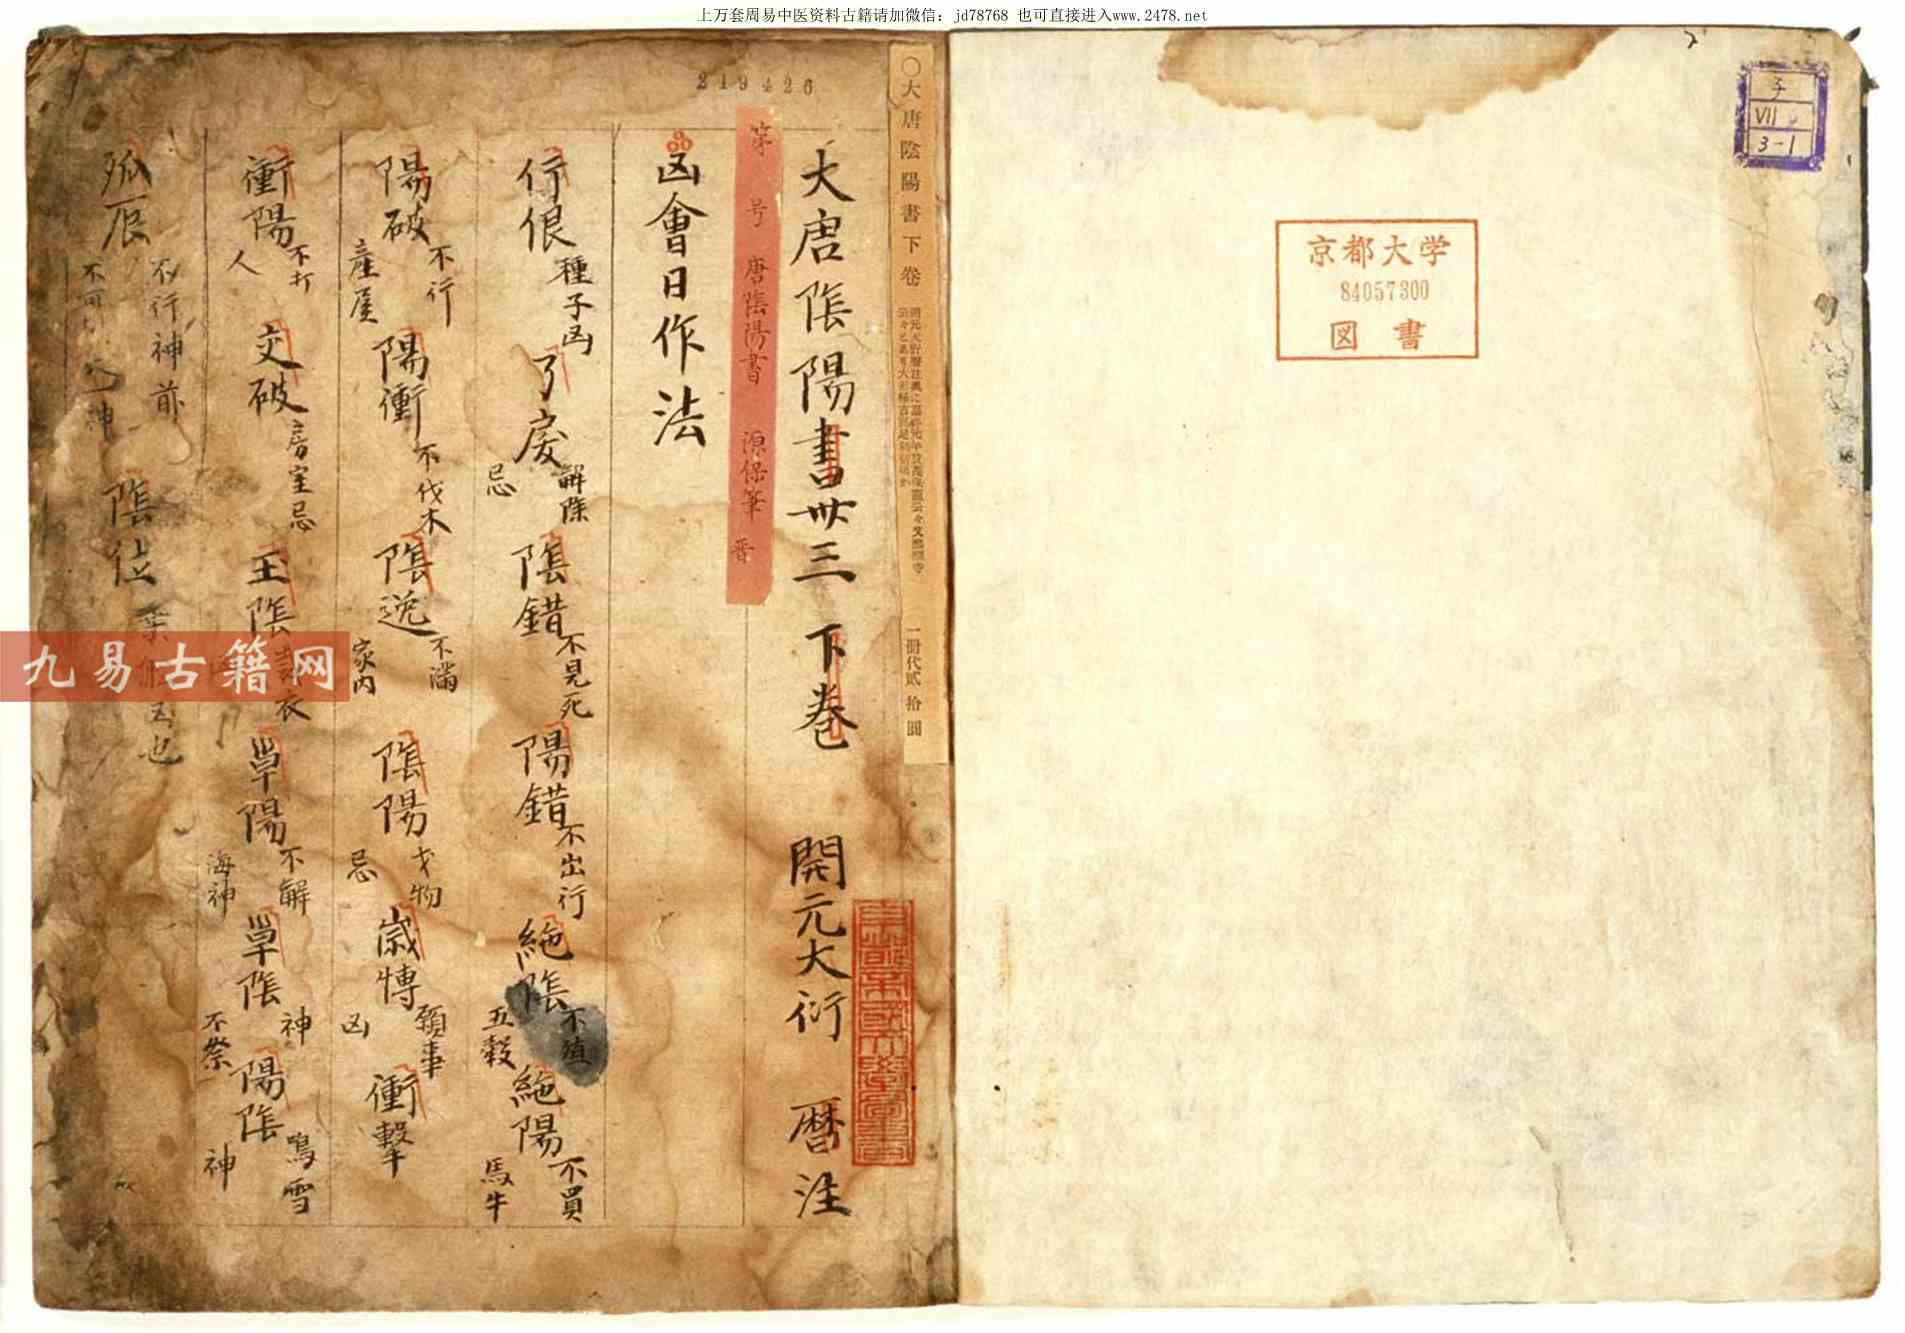 上万套周易中医资料古籍请加微信：jd78768 也可直接进入www.2478.net
子
VII
3-1
京都大学
84057300
図書
〇大唐陰陽書下卷
一冊代貳拾圓
219426
大唐陰陽書卅三下巻 開元大衍暦注
号 唐陰陽書 源保筆
凶會日作法
行佷 種子凶 了戾 解除忌 陰錯 不見死 陽錯 不出行 絶陰 不殖五穀 絶陽 不買馬牛
陽破 不行産屋 陽衝 不伐木 陰逆 不満家内 陰陽 物忌 歳博 凶 衝撃
衝陽 不打人 交破 房室忌 陰 衣 單陽 不解海神 單陰 神不祭 陽陰 神
孤辰 不行神前 不可 神 陰位 也
九易古籍网